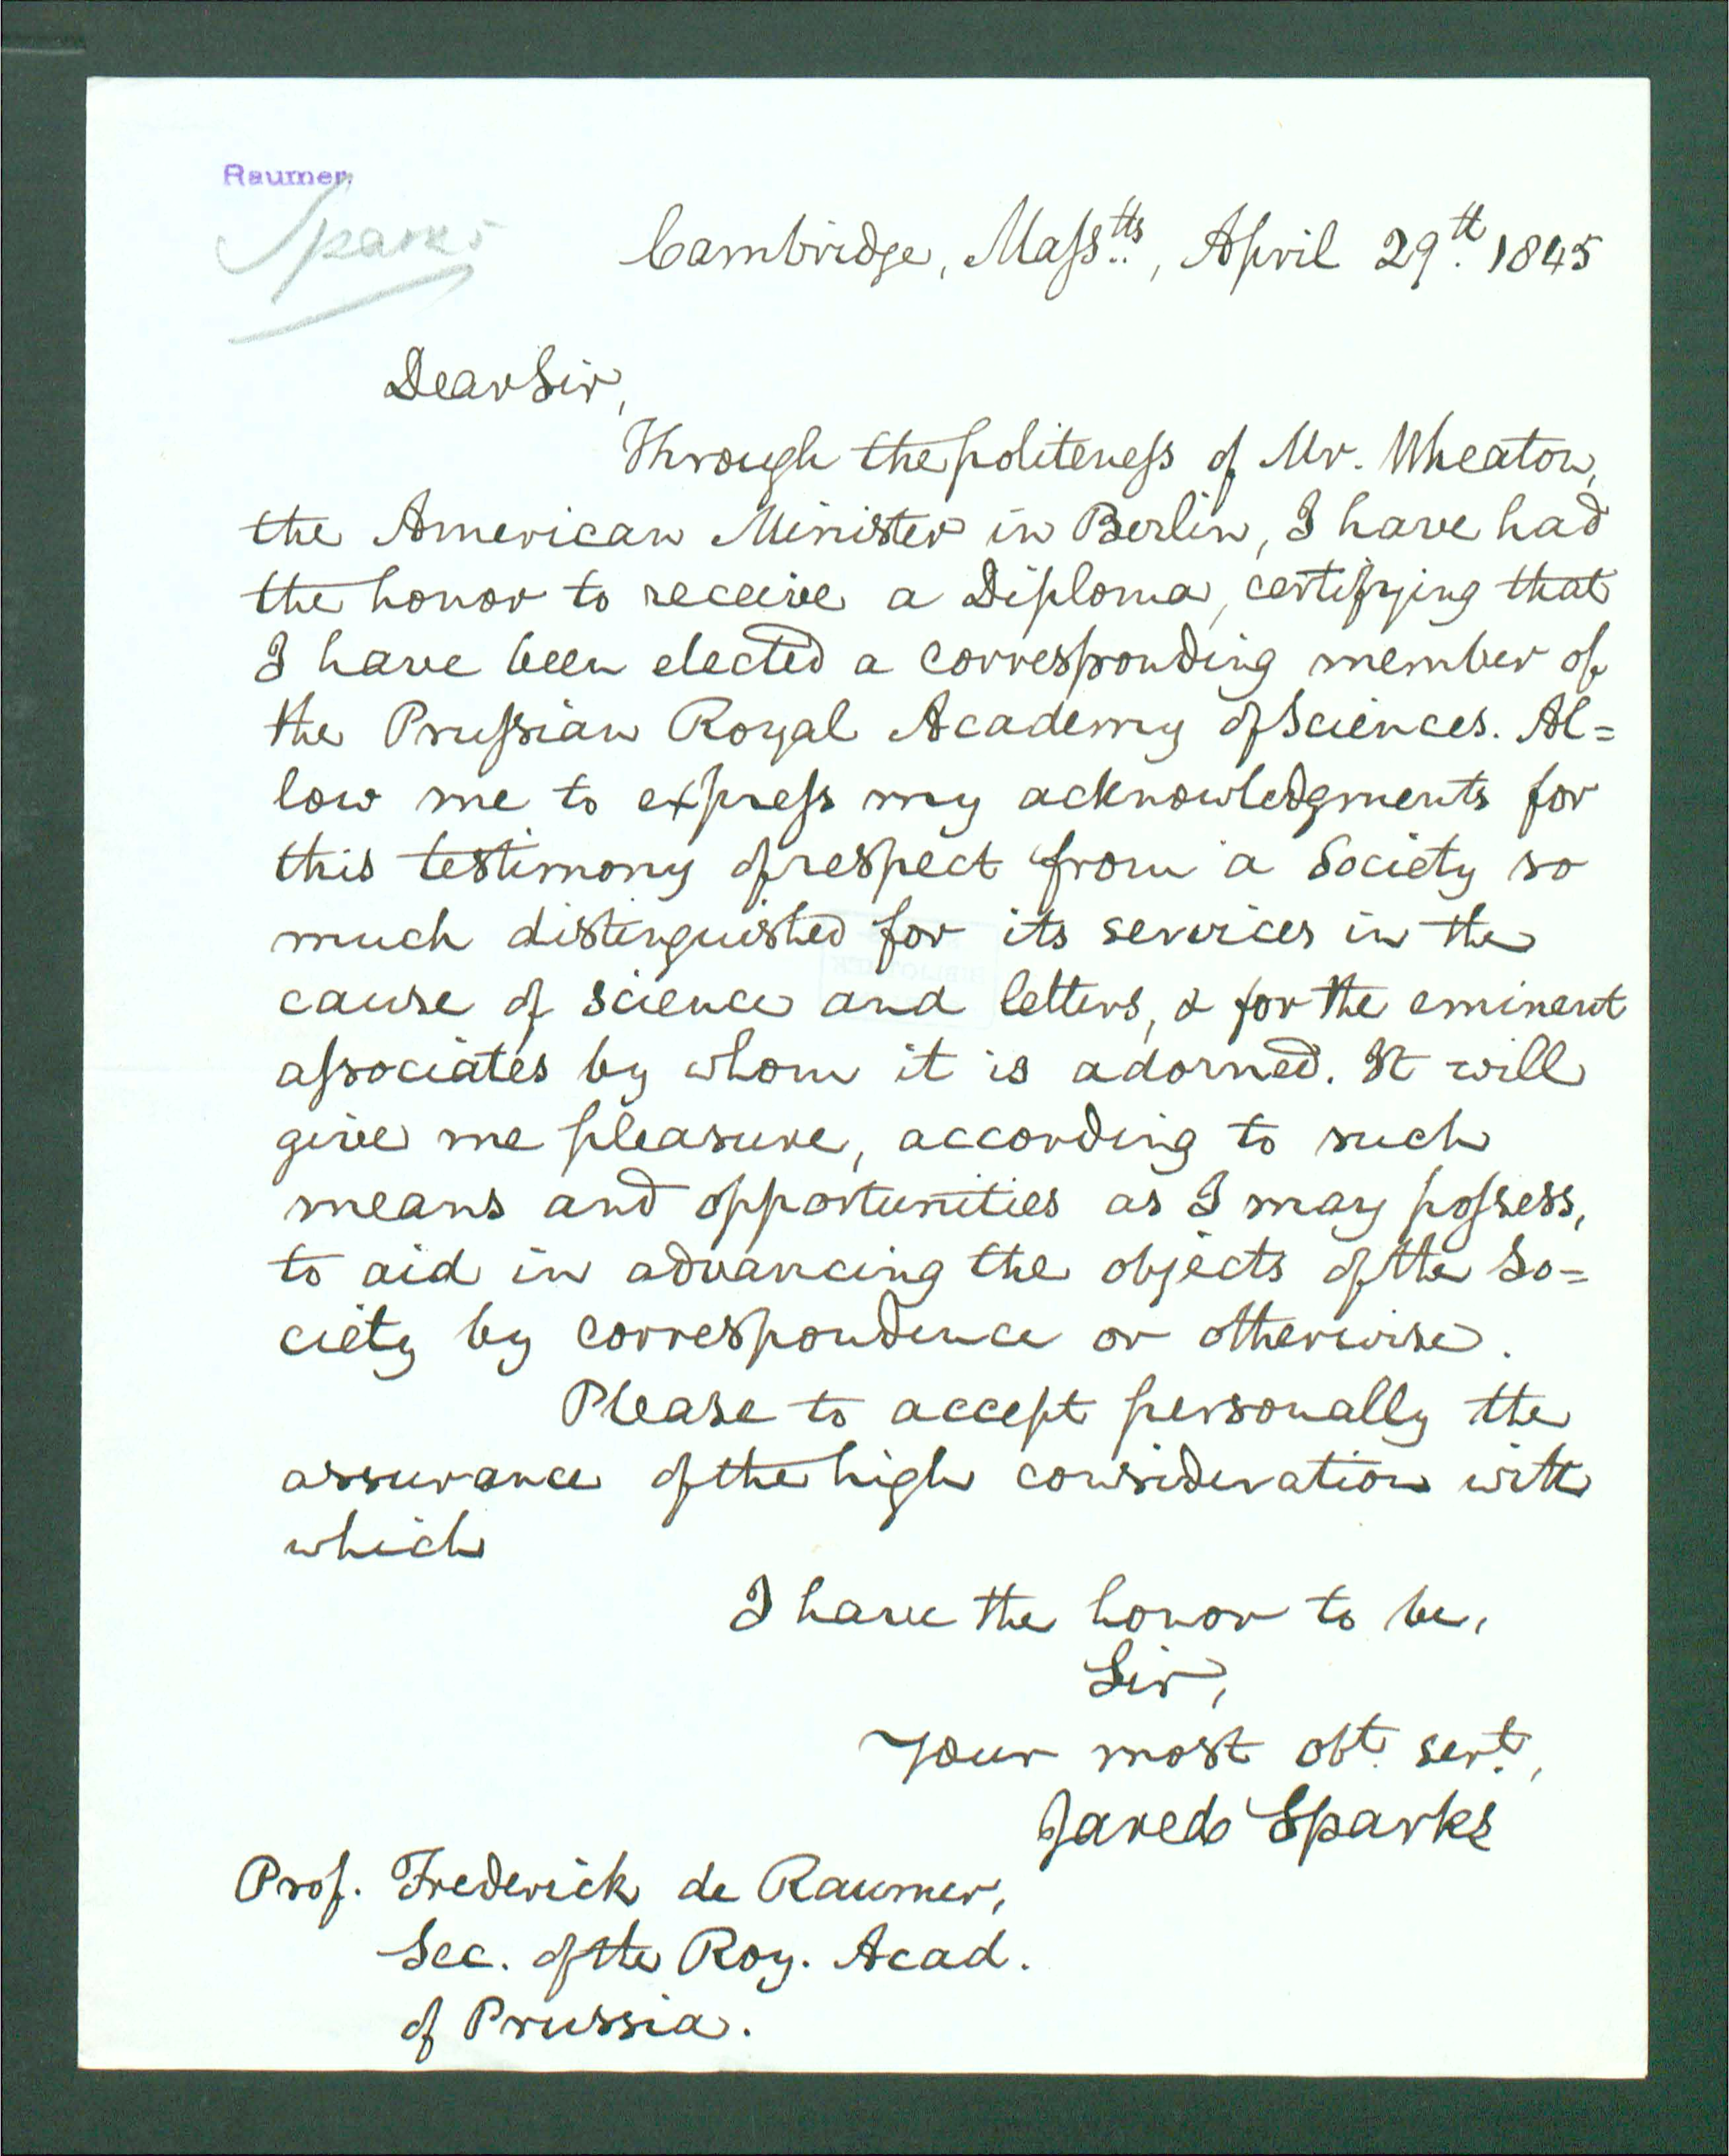 Raumer.
Sparks
Cambridge, Masstts., April 29th. 1845
Dear Sir,
Through the politeness of Mr. Wheaton,
the American Minister in Berlin, I have had
the honor to receive a Diploma, certifying that
I have been elected a corresponding member of
the Prussian Royal Academy of Sciences. Al=
low me to express my acknowledgments for
this testimony of respect from a Society so
much distinguished for its services in the
cause of science and letters, & for the eminent
associates by whom it is adorned. It will
give me pleasure, according to such
means and opportunities as I may possess,
to aid in advancing the objects of the So=
ciety by correspondence or otherwise.
Please to accept personally the
assurance of the high consideration with
which
I have the honor to be,
Sir,
Your most obt. sert.,
Jared Sparks
Prof. Frederick de Raumer,
Sec. of the Roy. Acad.
of Prussia.